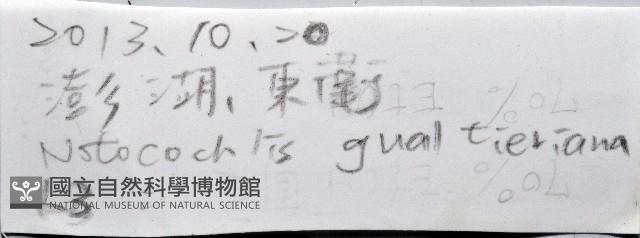 2013、10、20
澎湖、東衛
Notocochlis gualtieriana
國立自然科學博物館
NATIONAL MUSEUM OF NATURAL SCIENCE